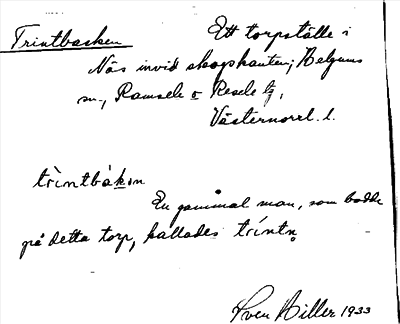 Trintbacken Ett torpställe i
Näs invid skogskanten; Belguns
sn, Ramsele o Resele tg,
Västernorrl. l.
trintbákɷn
En gammal man, som bodde
på detta torp, kallades trintn
Sven Hiller 1933